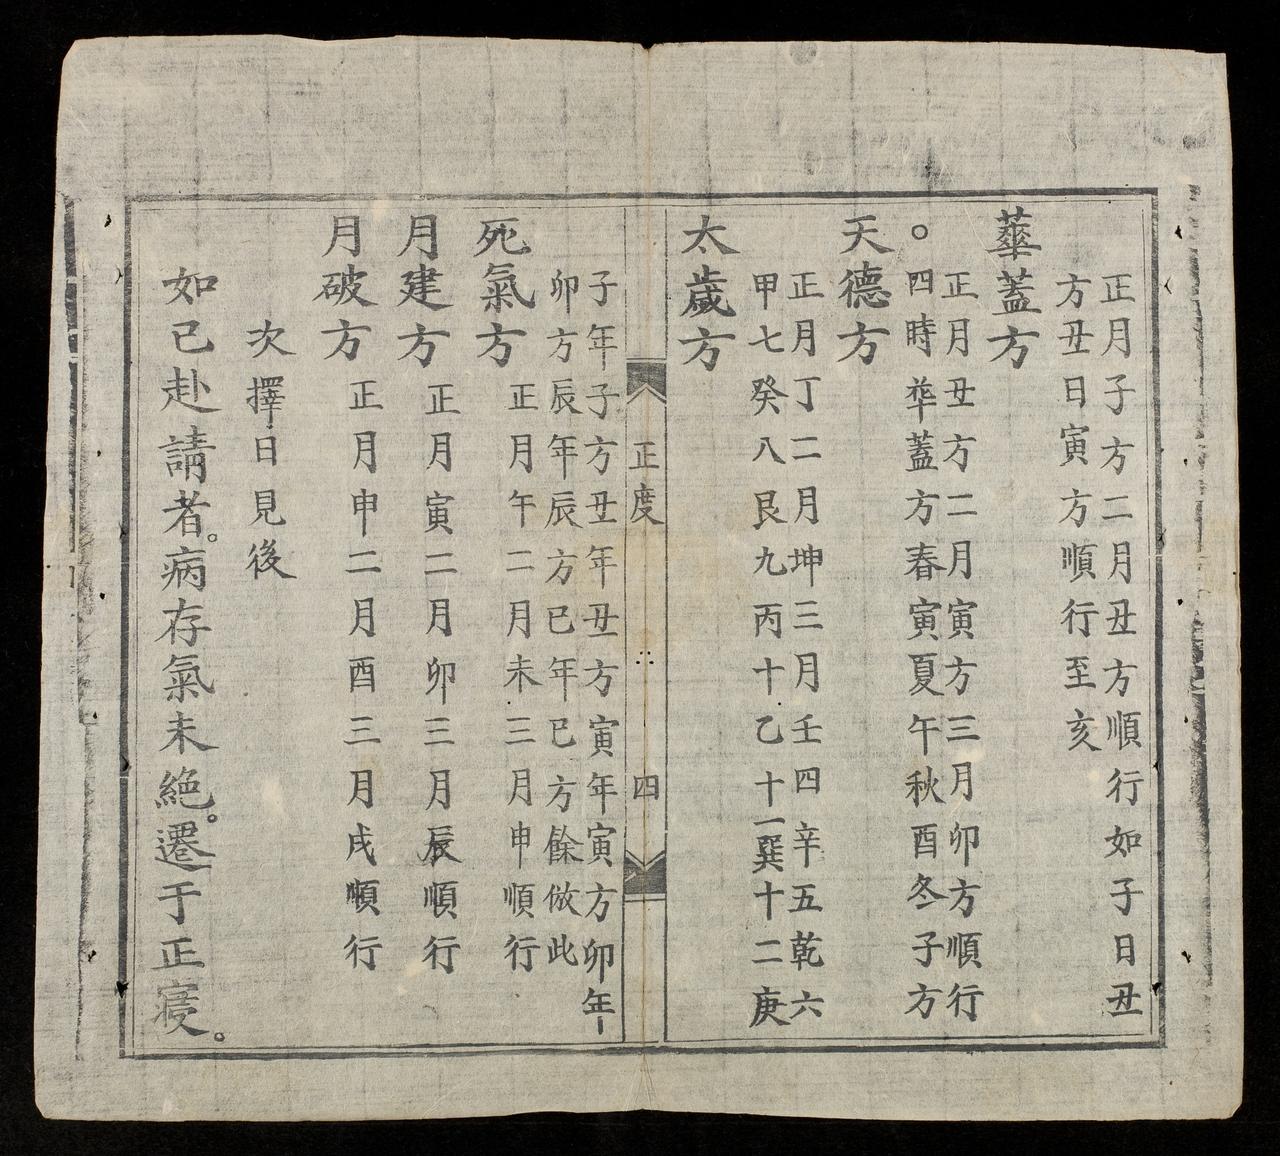 正月子方二月丑方順行如子日丑
方丑日寅方順行至亥
華蓋方
正月丑方二月寅方三月卯方順行
。四時華蓋方春寅夏午秋酉冬子方
天德方
正月丁二月坤三月壬四辛五乾六
甲七癸八艮九丙十乙十一巽十二庚
太歲方
正度 四
子年子方丑年丑方寅年寅方卯年
卯方辰年辰方巳年巳方餘倣此
死氣方 正月午二月未三月申順行
月建方 正月寅二月卯三月辰順行
月破方 正月申二月酉三月戌順行
次擇日見後
如已赴請者。病存氣未絶。遷于正寢。